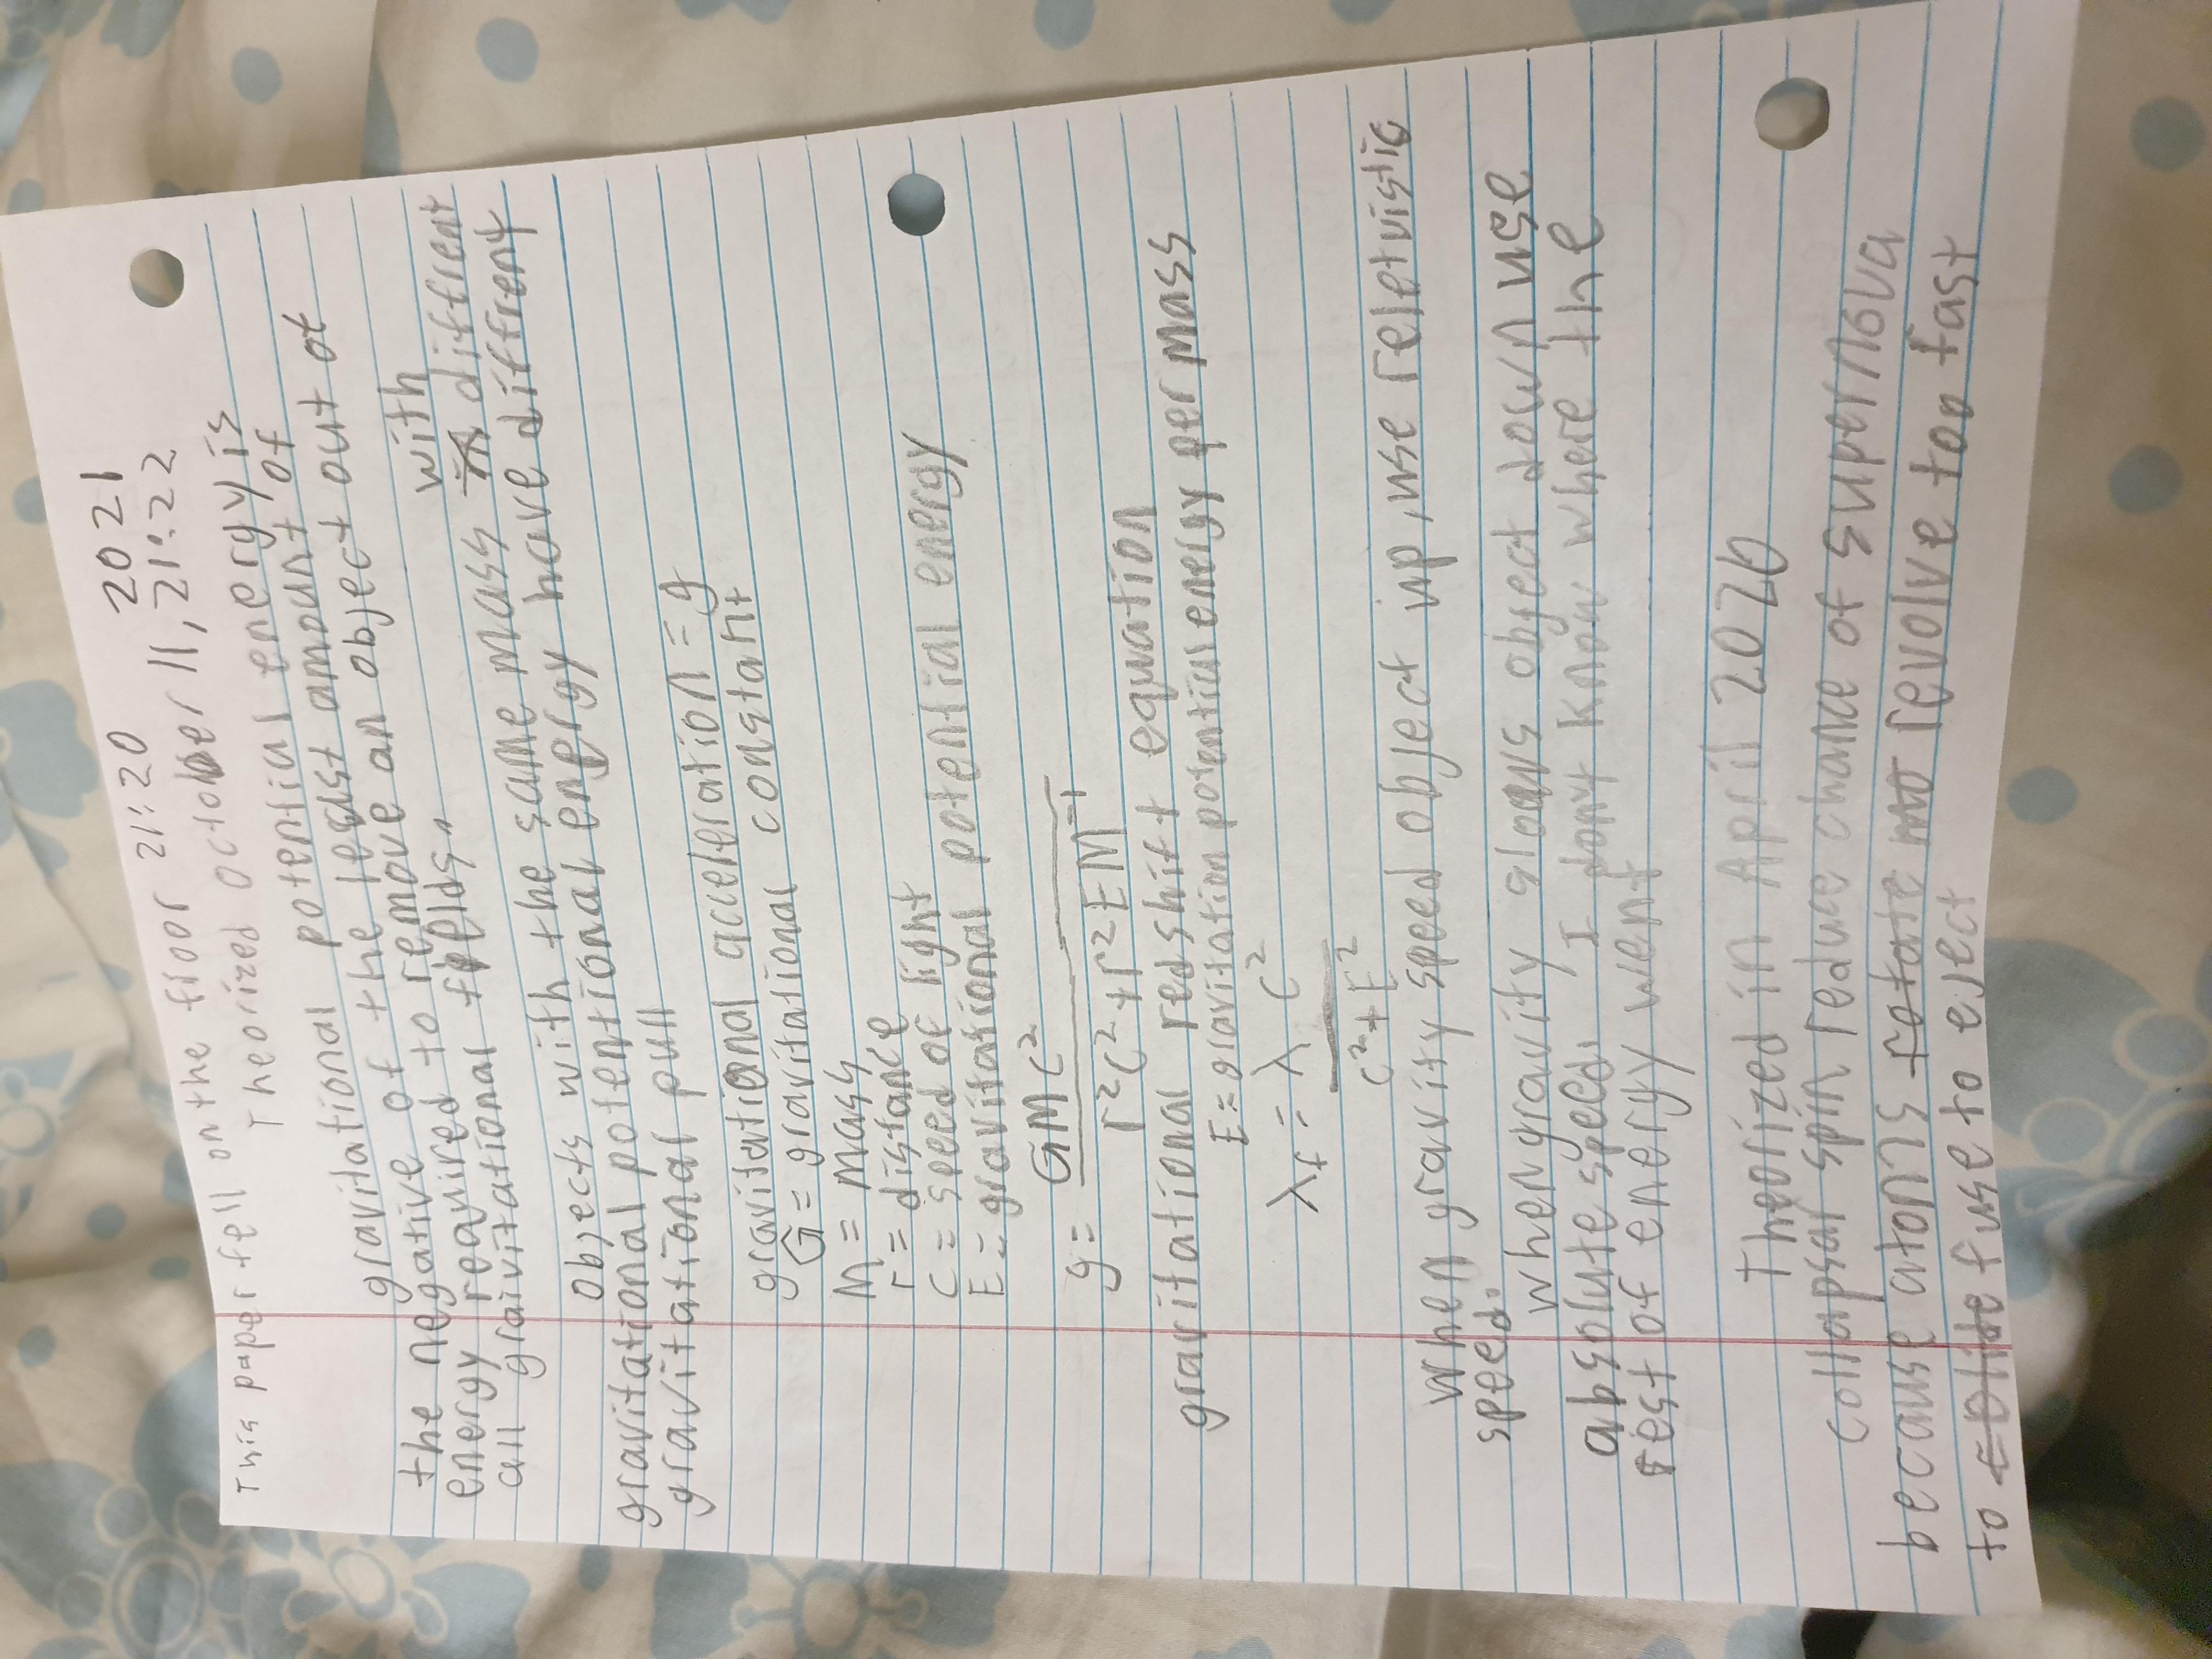 This paper fell on the floor 21:20 2021
Theorized October 11, 21:22
gravitational potential energy is
the negative of the least amount of
energy required to remove an object out of
all graivitational fields.
with
objects with the same mass in diffrent
gravitational potentional energy have diffrent
gravitational pull
gravitational acceleration = g
G = gravitational constant
M = mass
r = distance
c = speed of light
E = gravitational potential energy
g = GMc²
r²c²+r²EM⁻¹
gravitational redshift equation
E = gravitation potential energy per mass
λf = λ c²
c²+E²
when gravity speed object up, use reletvistic
speed.
when gravity slows object down use
absolute speed. I don't know where the
rest of energy went
Theorized in April 2026
collapsar spin reduce chance of supernova
because atoms rotate mo revolve too fast
to colide fuse to eject